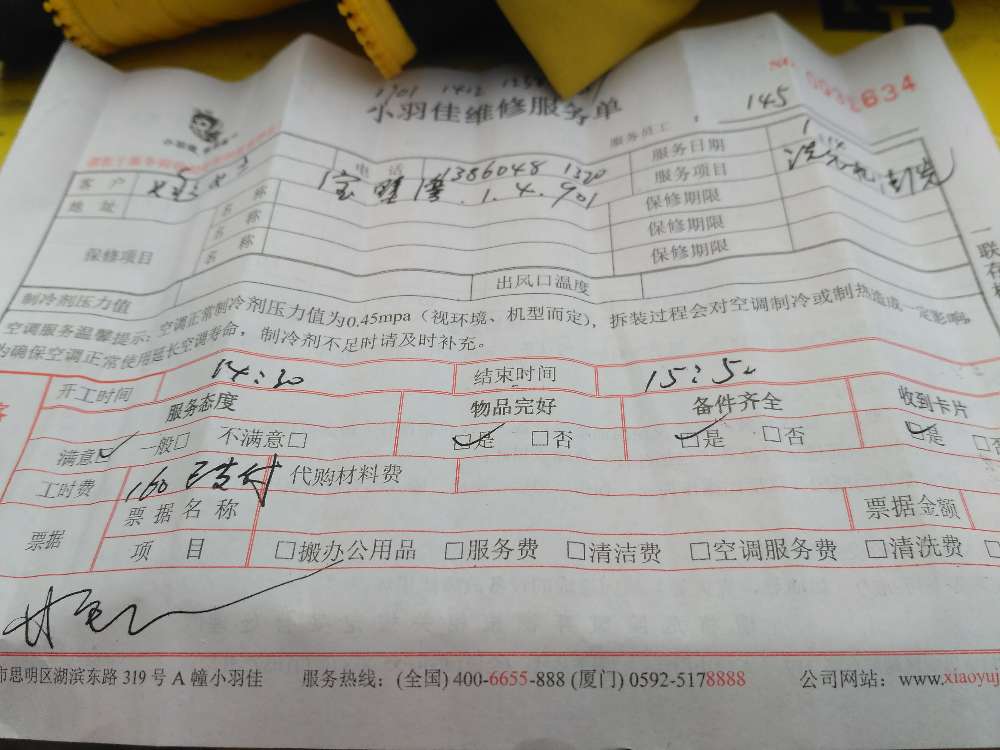 小羽佳维修服务单
服务员工： 145
客户 电话 1386048 1320 服务日期 1
地址 . 1. 4. 901 服务项目 洗
名称 保修期限
保修项目 名称 保修期限
名称 保修期限
制冷剂压力值 出风口温度
空调服务温馨提示：空调正常制冷剂压力值为0.45mpa（视环境、机型而定），拆装过程会对空调制冷或制热造成一定影响，
为确保空调正常使用延长空调寿命，制冷剂不足时请及时补充。
开工时间 14:30 结束时间 15:50
服务态度 物品完好 备件齐全 收到卡片
满意□ 一般□ 不满意□ □是 □否 □是 □否 □是 □否
工时费 160 已支付 代购材料费
票据 票据名称 票据金额
项目 □搬办公用品 □服务费 □清洁费 □空调服务费 □清洗费
市思明区湖滨东路 319 号 A 幢小羽佳 服务热线：(全国) 400-6655-888 (厦门) 0592-5178888 公司网站：www.xiaoyuj